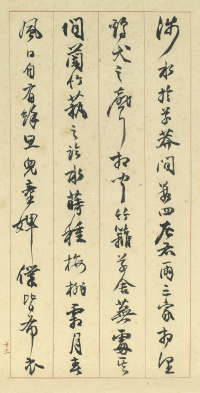 涉水於草莽間數四左右兩三家相望
雞犬之聲相聞竹籬草舍燕處其
間蘭竹藝之臨水蒔種梅柳霜月春
風日自有餘思兒童婢僕皆布衣
十三